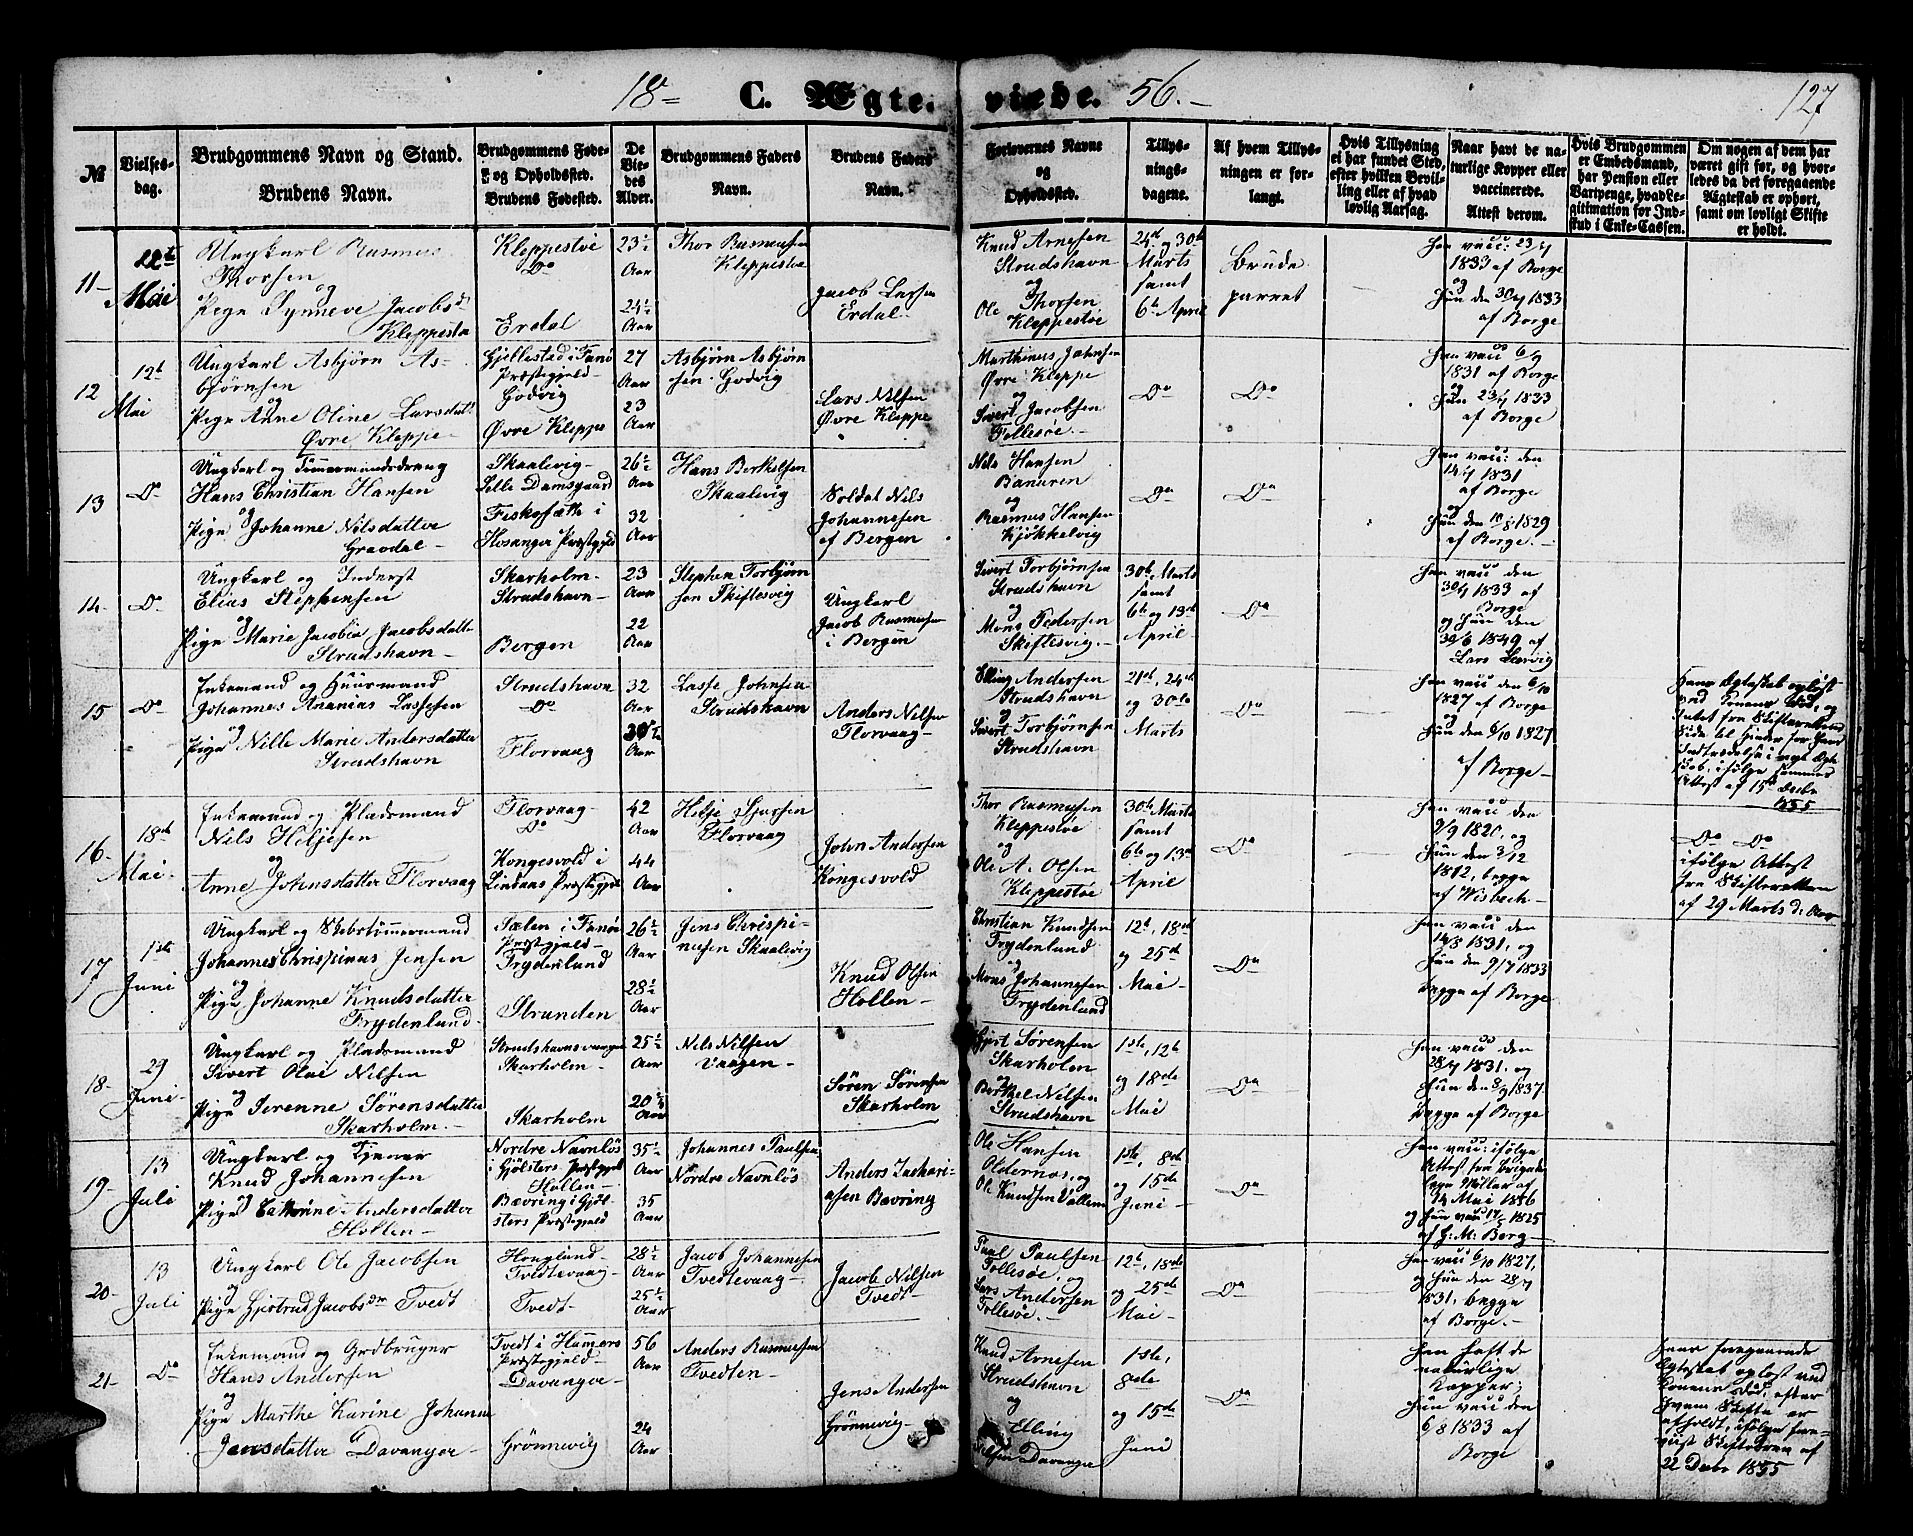 18 C. Ægteviede. 56. 127
№
Vielses-
dag.
Brudgommens Navn og Stand.
Brudens Navn.
Brudgommens Føde-
og Opholdssted.
Brudens Fødested.
De
Vie-
des
Alder.
Brudgommens Faders
Navn.
Brudens Faders
Navn.
Forlovernes Navne
og
Opholdssted.
Tillys-
nings-
dagene.
Af hvem Tillys-
ningen er for-
langt.
Hvis Tillysning
ei har fundet Sted,
efter hvilken Bevil-
ling eller af hvad
lovlig Aarsag.
Naar havt de na-
turlige Kopper eller
vaccinerede.
Attest derom.
Hvis Brudgommen
er Embedsmand,
har Pension eller
Vartpenge, hvad Le-
gitimation for Ind-
skud i Enke-Cassen.
Om nogen af dem har
været gift før, og hvor-
ledes da det foregaaende
Ægteskab er ophørt,
samt om lovligt Skifte
er holdt.
11
Mai
Ungkarl Rasmus
Thorsen
og
Pige Synneve Jacobsd
Kleppestø
Kleppestøe
Do
Erdal
23½
Aar
24½
Aar
Thor Rasmussen
Kleppestø
Jacob Larsen
Erdal
Knud Arnesen
Strudshavn
og
Ole Thorsen
Kleppestøe
24de og 30te
Marts
samt
6te April
Brude
parret
Han vacc: 23/7
1833 af Borge
og
Hun den 30/7 1833
af Borge
12
12te
Mai
Ungkarl Asbjørn As-
bjørnsen
og
Pige Anne Oline Larsdatt
Øvre Kleppe
Gjellestad i Fanø
Præstegjeld
Godvig
Øvre Kleppe
27
Aar
23
Aar
Asbjørn Asbjørn
sen Godvig
Lars Nilsen
Øvre Kleppe
Marthinus Johnsen
Øvre Kleppe
og
Sivert Jacobsen
Follesøe
Do
Do
Han vacc 6/9
1831 af Borge
og
Hun 23/7 1833
af Borge
13
Do
Ungkarl og Tømmermandsdreng
Hans Christian Hansen
og
Pige Johanne Nilsdatter
Graadal
Skaalevig
Lille Damsgaard
Fiskesæth i
Hosanger Præstegjeld
26½
Aar
32
Aar
Hans Berthelsen
Skaalevig
Soldat Nils
Johannesen
af Bergen
Nils Hansen
Banuren
og
Rasmus Hansen
Kjøkkelvig
Do
Do
Han vacc: den
14/7 1831
af Borge
og
Hun den 10/8 1829
af Borge
14
Do
Ungkarl og Inderst
Elias Stephensen
og
Pige Marie Jacobia Jacobsdatter
Strudshavn
Skarholm
Strudshavn
Bergen
23
Aar
22
Aar
Stephen Torbjørn
sen Skiftesvig
Ungkarl
Jacob Rasmussen
i Bergen
Sivert Torbjørnsen
Strudshavn
og
Mons Pedersen
Skiftesvig
30te Marts
samt
6te og 13de
April
Do
Han vacc den
30/7 1833 af
Borge
og Hun den
30/6 1849 af
Lars Lærvig
15
Do
Enkemand og Huusmand
Johannes Ananias Lassesen
og
Pige Nille Marie Andersdatter
Strudshavn
Strudshavn
Do
Florvaag
32
Aar
30½
Aar
Lasse Johnsen
Strudshavn
Anders Nilsen
Florvaag
Elling Andersen
Strudshavn
og
Sivert Torbjørnsen
Strudshavn
21de, 24de
og 30te
Marts
Do
Han vacc den 6/10
1827 af Borge
og
Hun den 6/10 1827
af Borge
Hans Ægteskab opløst
ved Konens Død, og
Intet fra Skifterettens
Side til Hinder for hans
Indtrædelse i nyt Ægte
skab, ifølge sammes
Attest af 15de Decbr
1855
16
18de
Mai
Enkemand og Pladsmand
Nils Heljesen
og
Anne Johnsdatter Florvaag
Florvaag
Do
Kongesvold i
Lindaas Præstegjeld
42
Aar
44
Aar
Helje Sjursen
Florvaag
John Andersen
Kongesvold
Thor Rasmussen
Kleppestøe
og
Ole A. Olsen
Kleppestøe
30te Marts
samt
6te og 13de
April
Do
Han vacc den
9/9 1820, og
Hun den 3/12
1812, begge
af Wisbech
Do Do
ifølge Attest
fra Skifteretten
af 29 Marts d. Aar
17
1ste
Juni
Ungkarl og Skibstømmermand
Johannes Chrispinus Jensen
og
Pige Johanne Knudsdatter
Frydenlund
Sælen i Fanø
Præstegjeld
Frydenlund
Strunden
26½
Aar
28½
Aar
Jens Chrispi-
nussen Skaalevig
Knud Olsen
Hollen
Christian Knudsen
Frydenlund
og
Mons Johannesen
Frydenlund
12te, 18de
og 25de
Mai
Do
Han vacc den
14/8 1831, og
Hun den 9/7 1833
begge af Borge
18
29
Juni
Ungkarl og Pladsmand
Sivert Olai Nilsen
og
Pige Serenne Sørensdatter
Skarholm
Strudshavnsvaagen
Skarholm
Skarholm
25½
Aar
20½
Aar
Nils Nilsen
Vaagen
Søren Sørensen
Skarholm
Gjert Sørensen
Skarholm
og
Berthel Nilsen
Strudshavn
1ste, 12te
og 18de
Mai
Do
Han vacc den
28/7 1831, og
Hun den 8/9 1837
begge af Borge
19
13
Juli
Ungkarl og Tjener
Knud Johannesen
og
Pige Cathrine Andersdatter
Hollen
Nordre Navnløs
i Gjølsters Præstegjeld
Hollen
Bævring i Gjøl
sters Præstegjeld
35½
Aar
35
Aar
Johannes Paulsen
Nordre Navnløs
Anders Zachari-
asen Bævring
Ole Hansen
Oldernæs, og
Ole Knudsen Vallem
1ste, 8de
og 15de
Juni
Do
Han vacc: ifølge
Attest fra Brigade
læge Møller af
14 Mai 1856
og Hun vacc 14/8 1825
af H. M. Berg
20
13
Juli
Ungkarl Ole Jacobsen
og
Pige Gjertrud Jacobsdr Tvedt
Houglund
Tvedtevaag
Tvedt
28½
Aar
25½
Aar
Jacob Johannesen
Tvedtevaag
Jacob Nilsen
Tvedt
Paul Paulsen
Follesøe, og
Lars Andersen
Follesøe
12te, 18de
og 25de
Mai
Do
Han vacc 6/10 1827,
og Hun den 28/7
1831, begge
af Borge.
21
Do
Enkemand og Grdbruger
Hans Andersen
og
Pige Marthe Karine Johanne
Jensdatter Davanger
Tvedt i Hamers
Præstegjeld
Davanger
Grønnevig
56
Aar
24
Aar
Anders Rasmussen
Tvedten
Jens Andersen
Grønnevig
Knud Arnesen
Strudshavn
og
Elling
Nilsen Davanger
1ste,
8de
og 15de
Juni
Do
Han haft de
naturlige
Kopper;
Hun vacc den
6/8 1833 af
Borge
Hans foregaaende
Ægteskab opløst ved
Konens Død, efter
hvem Skifte er
afholdt, ifølge fore-
viist Skiftebrev af
22 Decbr 1855